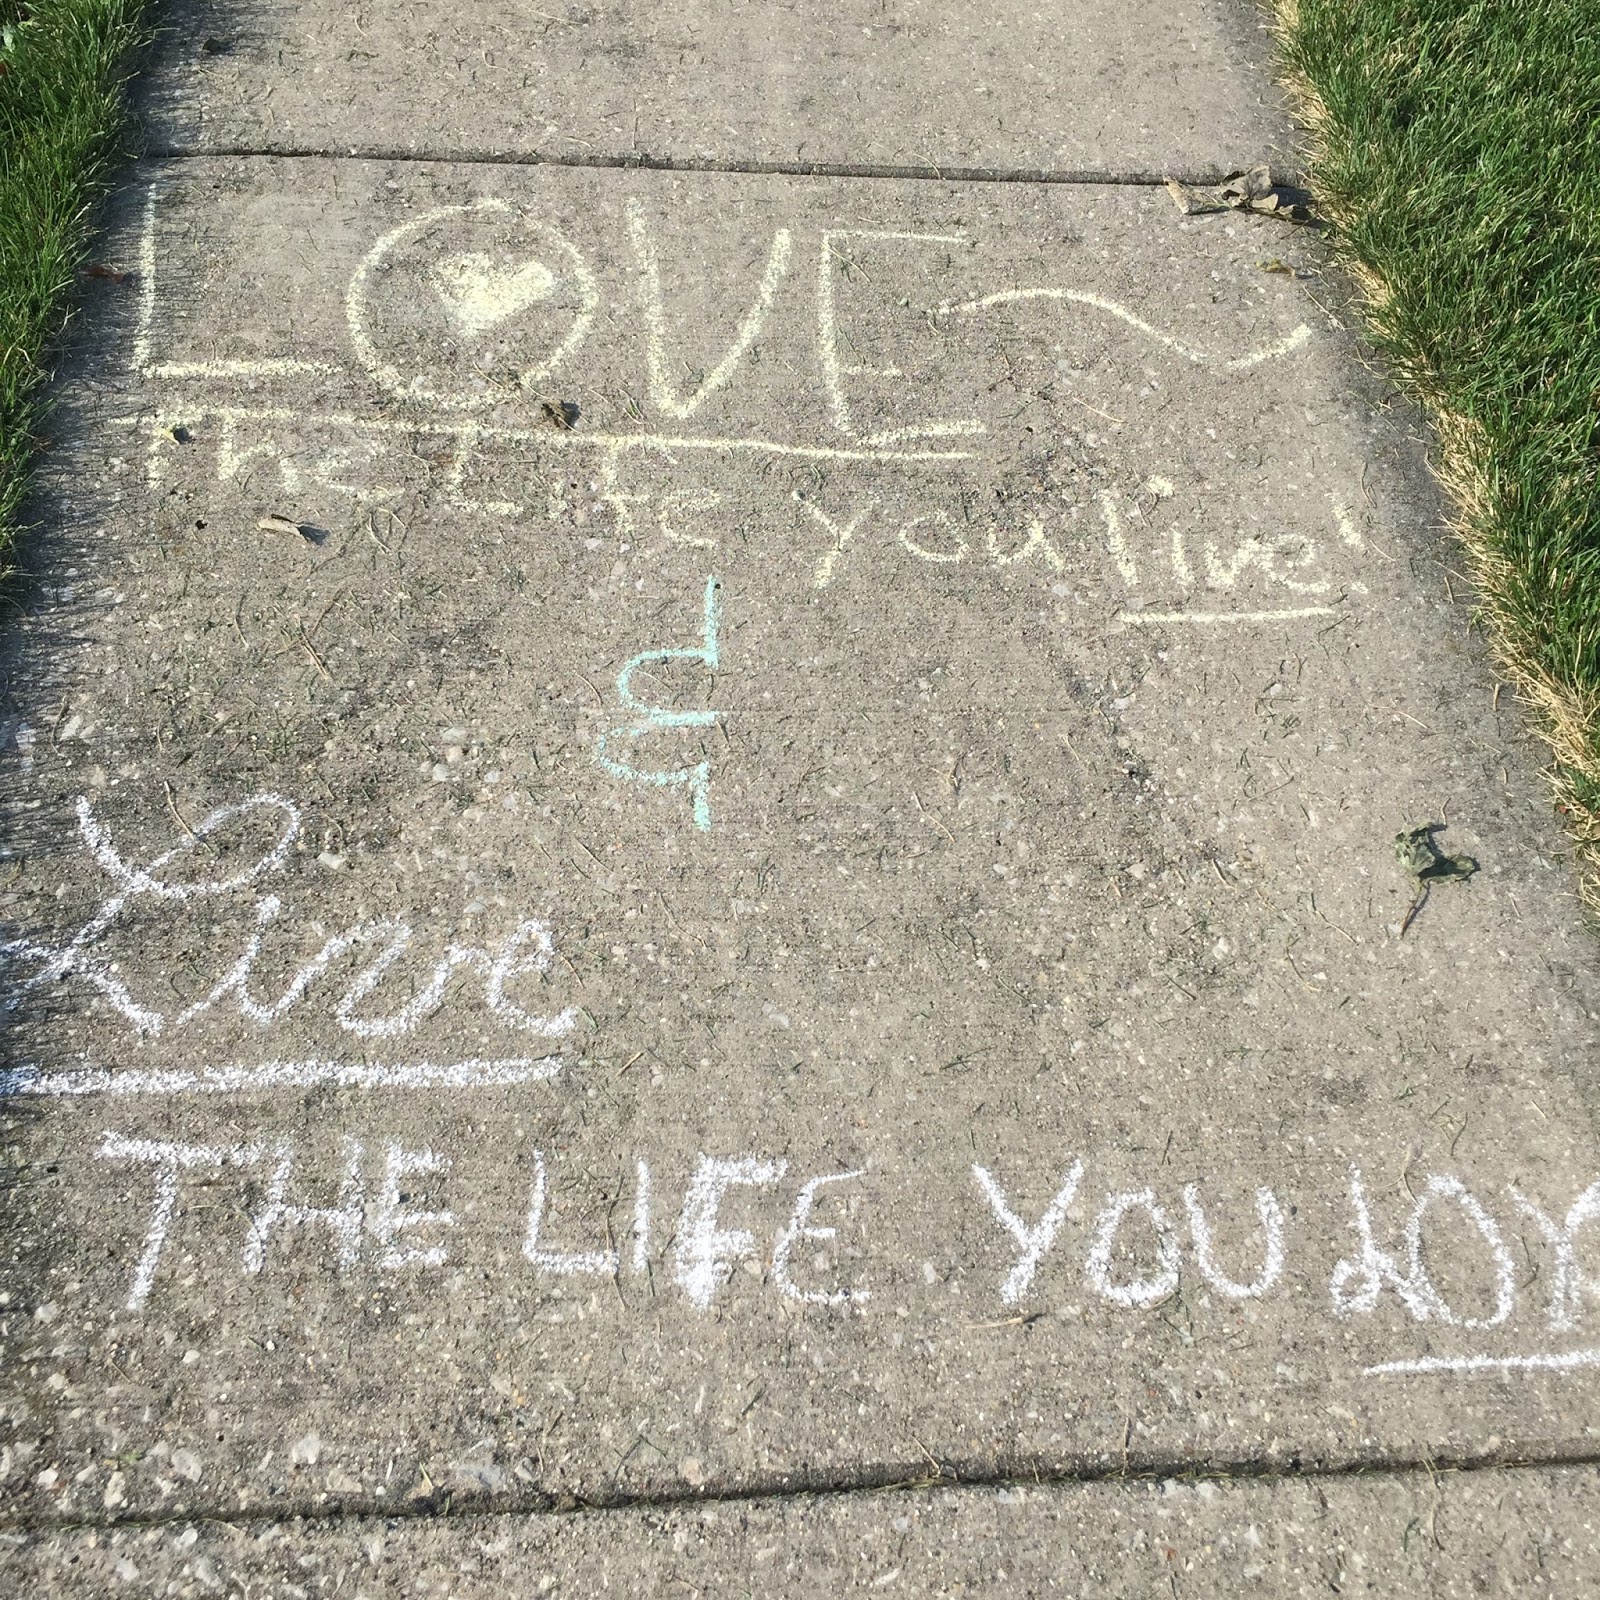 LOVE
The Life you live!
&
Live
THE LIFE YOU LOV